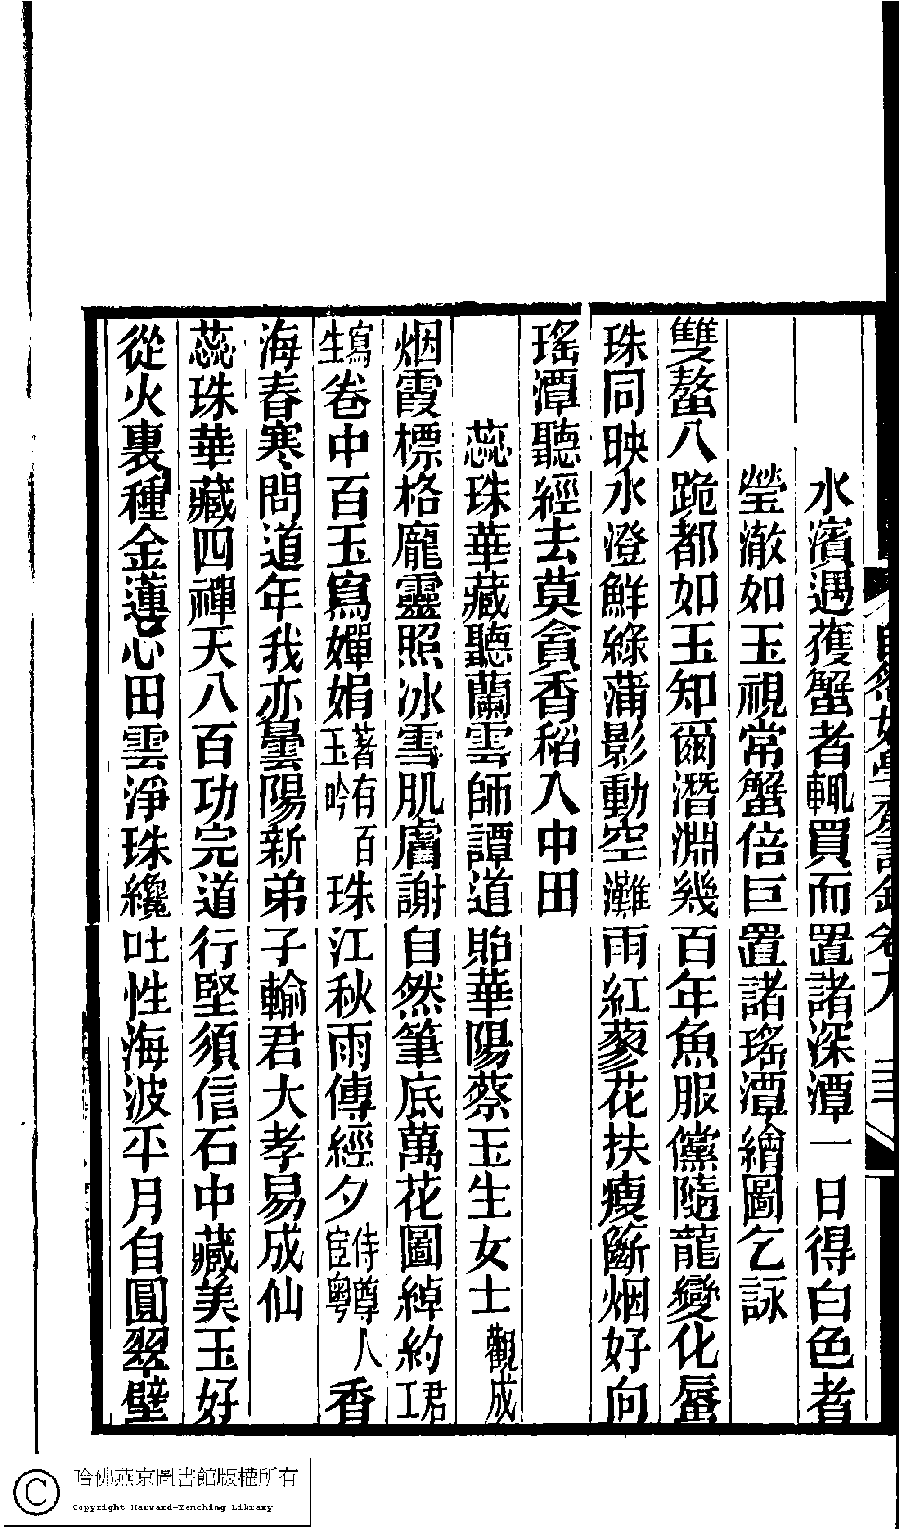 水濱遇蒦蟹者輒買而置諸深潭一日得白色者
瑩澈如玉視常蟹倍巨置諸瑤潭繪圖乞詠
雙螯八跪都如玉知爾潛淵幾百年魚服儻隨龍變化蜃
珠同映水澄鮮綠蒲影動空灘雨紅蓼花扶瘦斷烟好向
瑤潭聽經去莫貪香稻入中田
蕊珠華藏聽蘭雲師譚道貽華陽蔡玉生女士觀成
烟霞標格龐靈照冰雪肌膚謝自然筆底萬花圖綽約君工
寫生卷中百玉寫嬋娟著有百玉吟珠江秋雨傳經夕侍尊人宦粵香
海春寒問道年我亦曇陽新弟子輸君大孝易成仙
蕊珠華藏四禪天八百功完道行堅須信石中藏美玉好
從火裏種金蓮心田雲淨珠纔吐性海波平月自圓翠壁
自然好學齋詩鈔卷九
哈佛燕京圖書館版權所有
Copyright Harvard-Yenching Library